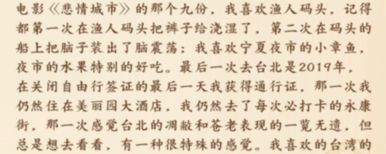 电影《悲情城市》的那个九份，我喜欢渔人码头，记得
都第一次在渔人码头把裤子给浇湿了，第二次在码头的
船上把脑子装出了脑震荡；我喜欢宁夏夜市的小章鱼，
夜市的水果特别的好吃。最后一次去台北是2019年，
在关闭自由行签证的最后一天我获得通行证，那一次我
仍然住在美丽园大酒店，我仍然去了每次必打卡的永康
街，那一次感觉台北的凋敝和苍老表现的一览无遗，但
总是想去看看，有一种很特殊的感觉。我喜欢的台湾的